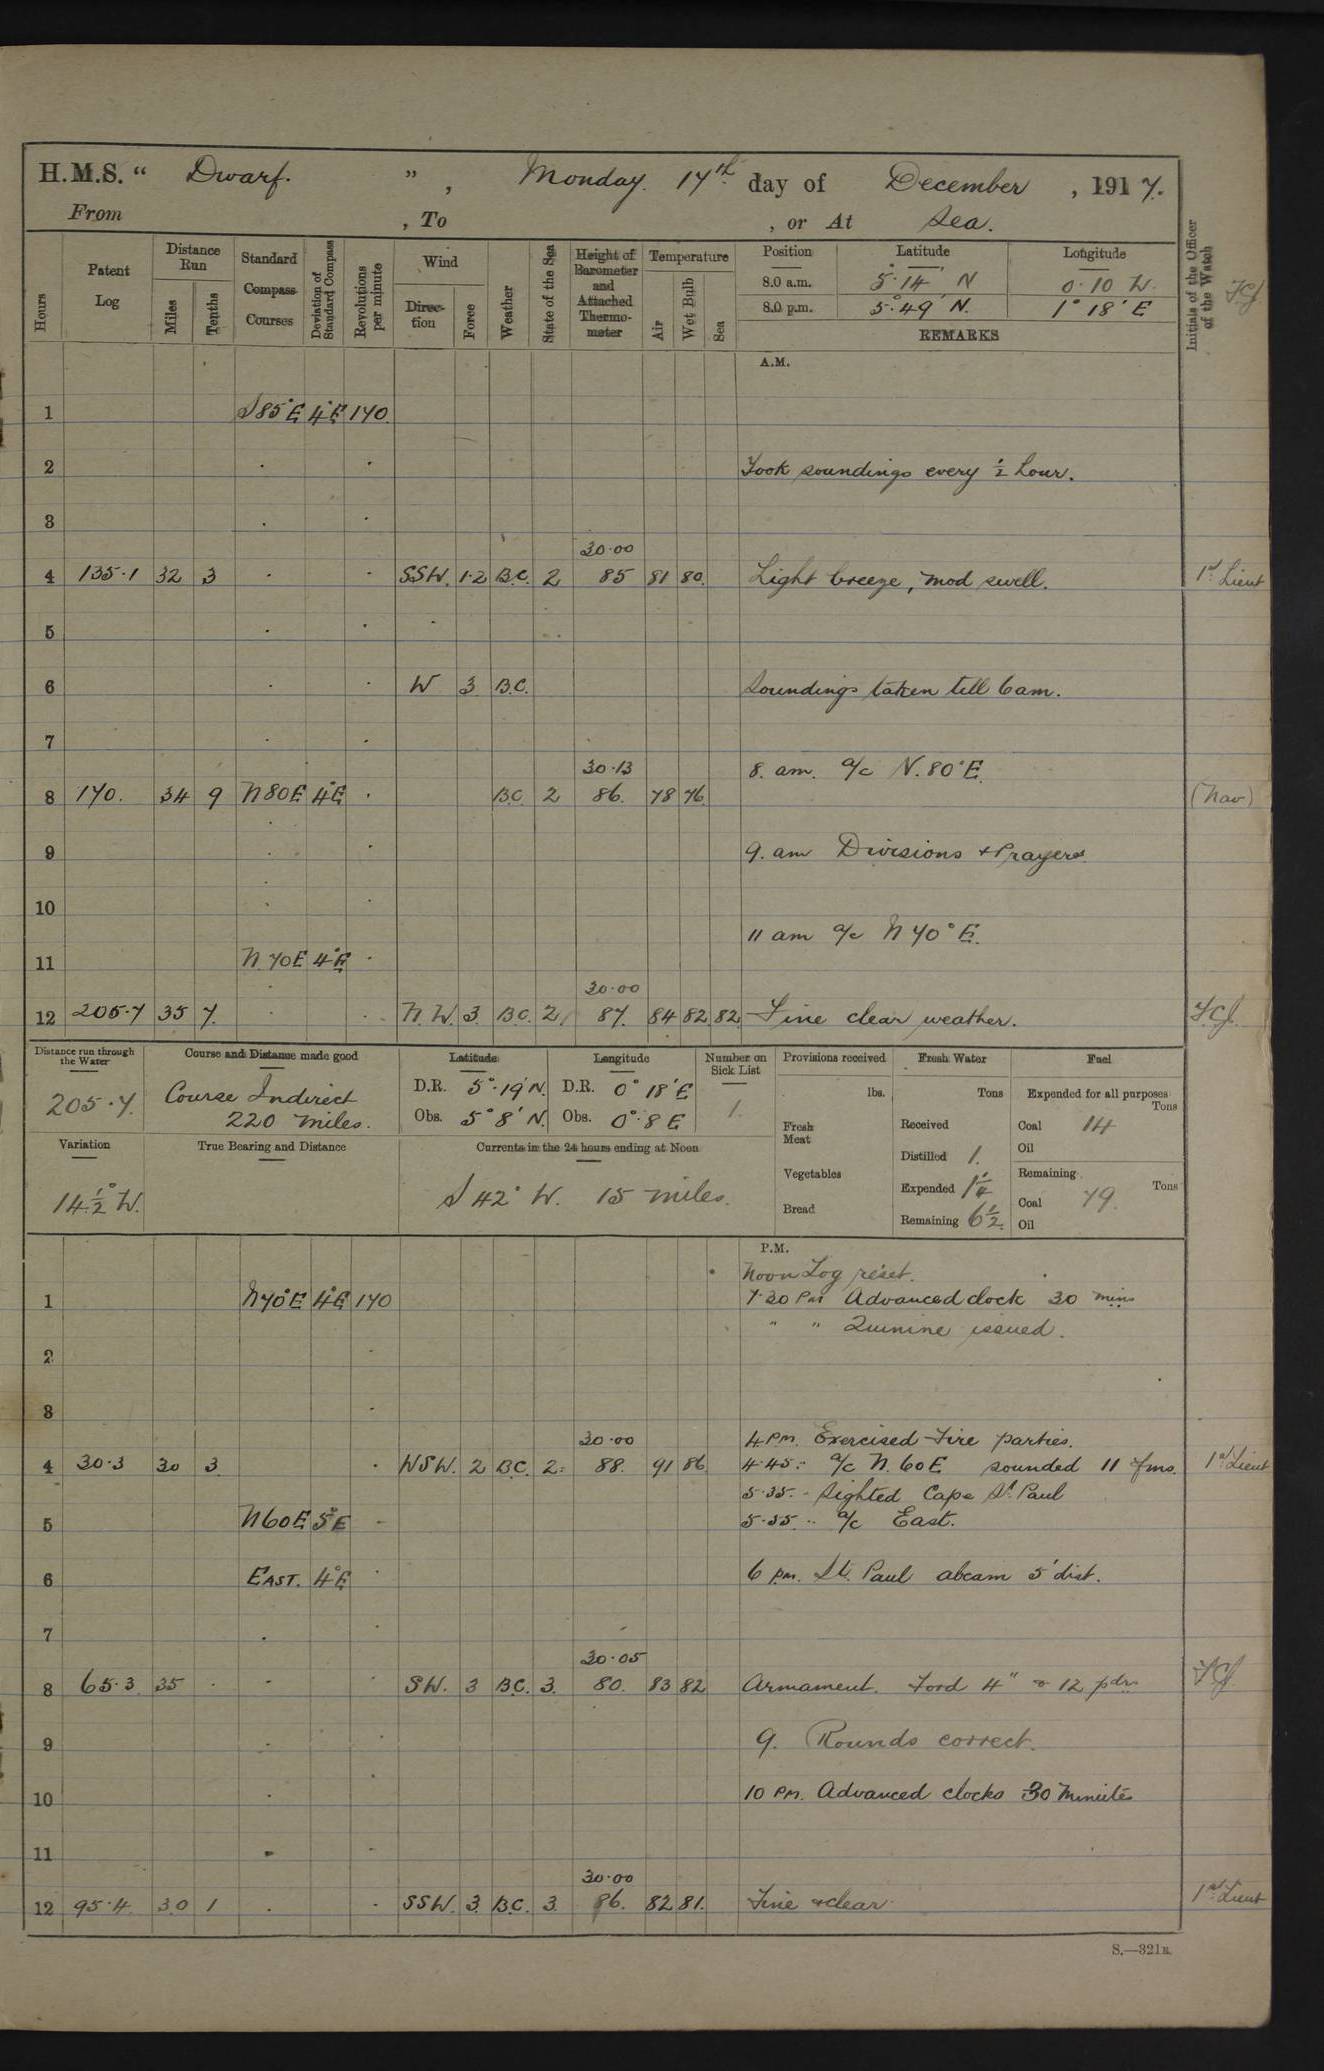 H.M.S. " Dwarf. ", Monday. 17th day of December, 1917.
From , To , or At Sea.
Hours Patent Log Distance Run Miles Tenths Standard Compass Courses Deviation of Standard Compass Revolutions per minute Wind Direction Force Weather State of the Sea Height of Barometer and Attached Thermometer Temperature Air Wet Bulb Sea Position Latitude Longitude Initials of the Officer of the Watch
8.0 a.m. 5°·14' N 0·10 W.
8.0 p.m. 5°·49' N. 1° 18' E
REMARKS
A.M.
1 S85°E 4°E 170
2 Took soundings every ½ hour.
3
30·00
4 135·1 32 3 SSW. 1·2 B.C. 2 85 81 80. Light breeze, mod swell. 1st Lieut
5
6 W 3 B.C. Soundings taken till 6 am.
7
30·13 8. am. a/c N. 80°E.
8 170. 34 9 N80E 4°E B.C. 2 86. 78 76 (Nav)
9 9. am Divisions & Prayers
10
11 am a/c N 70° E.
11 N. 70E 4°E
30·00
12 205·7 35 7. N.W. 3. B.C. 2 87. 84 82 82 Fine clear weather.
Distance run through the Water 205·7.
Course and Distance made good Course Indirect 220 miles.
Latitude D.R. 5°·19' N. Obs. 5° 8' N.
Longitude D.R. 0° 18' E Obs. 0°·8 E
Number on Sick List 1.
Provisions received lbs. Fresh Meat Vegetables Bread
Fresh Water Tons Received Distilled 1. Expended 1¼ Remaining 6½.
Fuel Expended for all purposes Tons Coal 14 Oil Remaining Tons Coal 79. Oil
Variation 14½° W.
True Bearing and Distance
Currents in the 24 hours ending at Noon S 42° W. 15 miles.
P.M.
Noon Log reset.
1 N70°E 4°E 170 1·30 PM Advanced clock 30 mins
" " Quinine issued.
2
3
30·00 4 PM. Exercised Fire parties.
4 30·3 30 3. WSW. 2 B.C. 2 88. 91 86 4·45 " a/c N. 60 E sounded 11 fms. 1st Lieut
5·35. " Sighted Cape St. Paul
5 N60E 5°E 5·55 " a/c East.
6 EAST. 4°E 6 pm. St. Paul abeam 5' dist.
7
30·05
8 65·3 35 · SW. 3 B.C. 3. 80. 83 82 Armament. Ford 4" & 12 pdrs
9 9. Rounds correct.
10 10 PM. Advanced clocks 30 Minutes
11
30·00
12 95·4. 30 1 SSW. 3. B.C. 3. 86. 82 81. Fine & clear 1st Lieut
S.—321B.